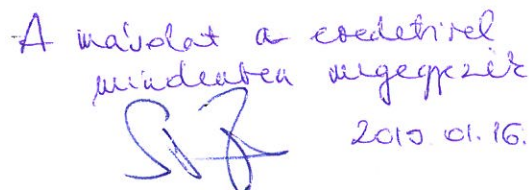 A másolat a eredetivel
mindenben megegyezik
2019.01.16.